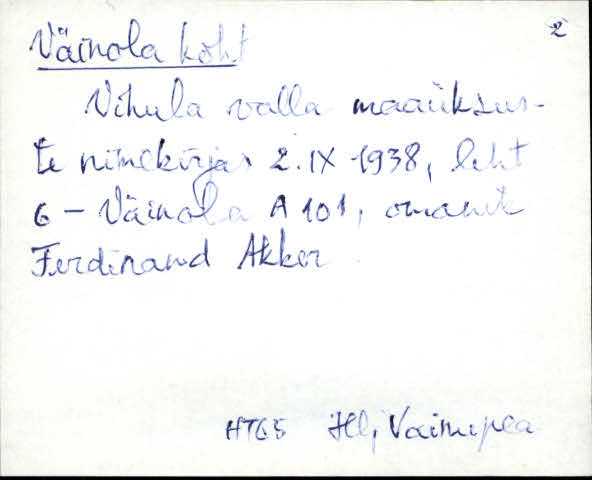 2
Väinola koht
Vihula valla maaüksus-
te nimekirjas 2.IX 1938, leht
6 - Väinola A 101, omanik
Ferdinand Akker
HT65 Hlj, Vainupea